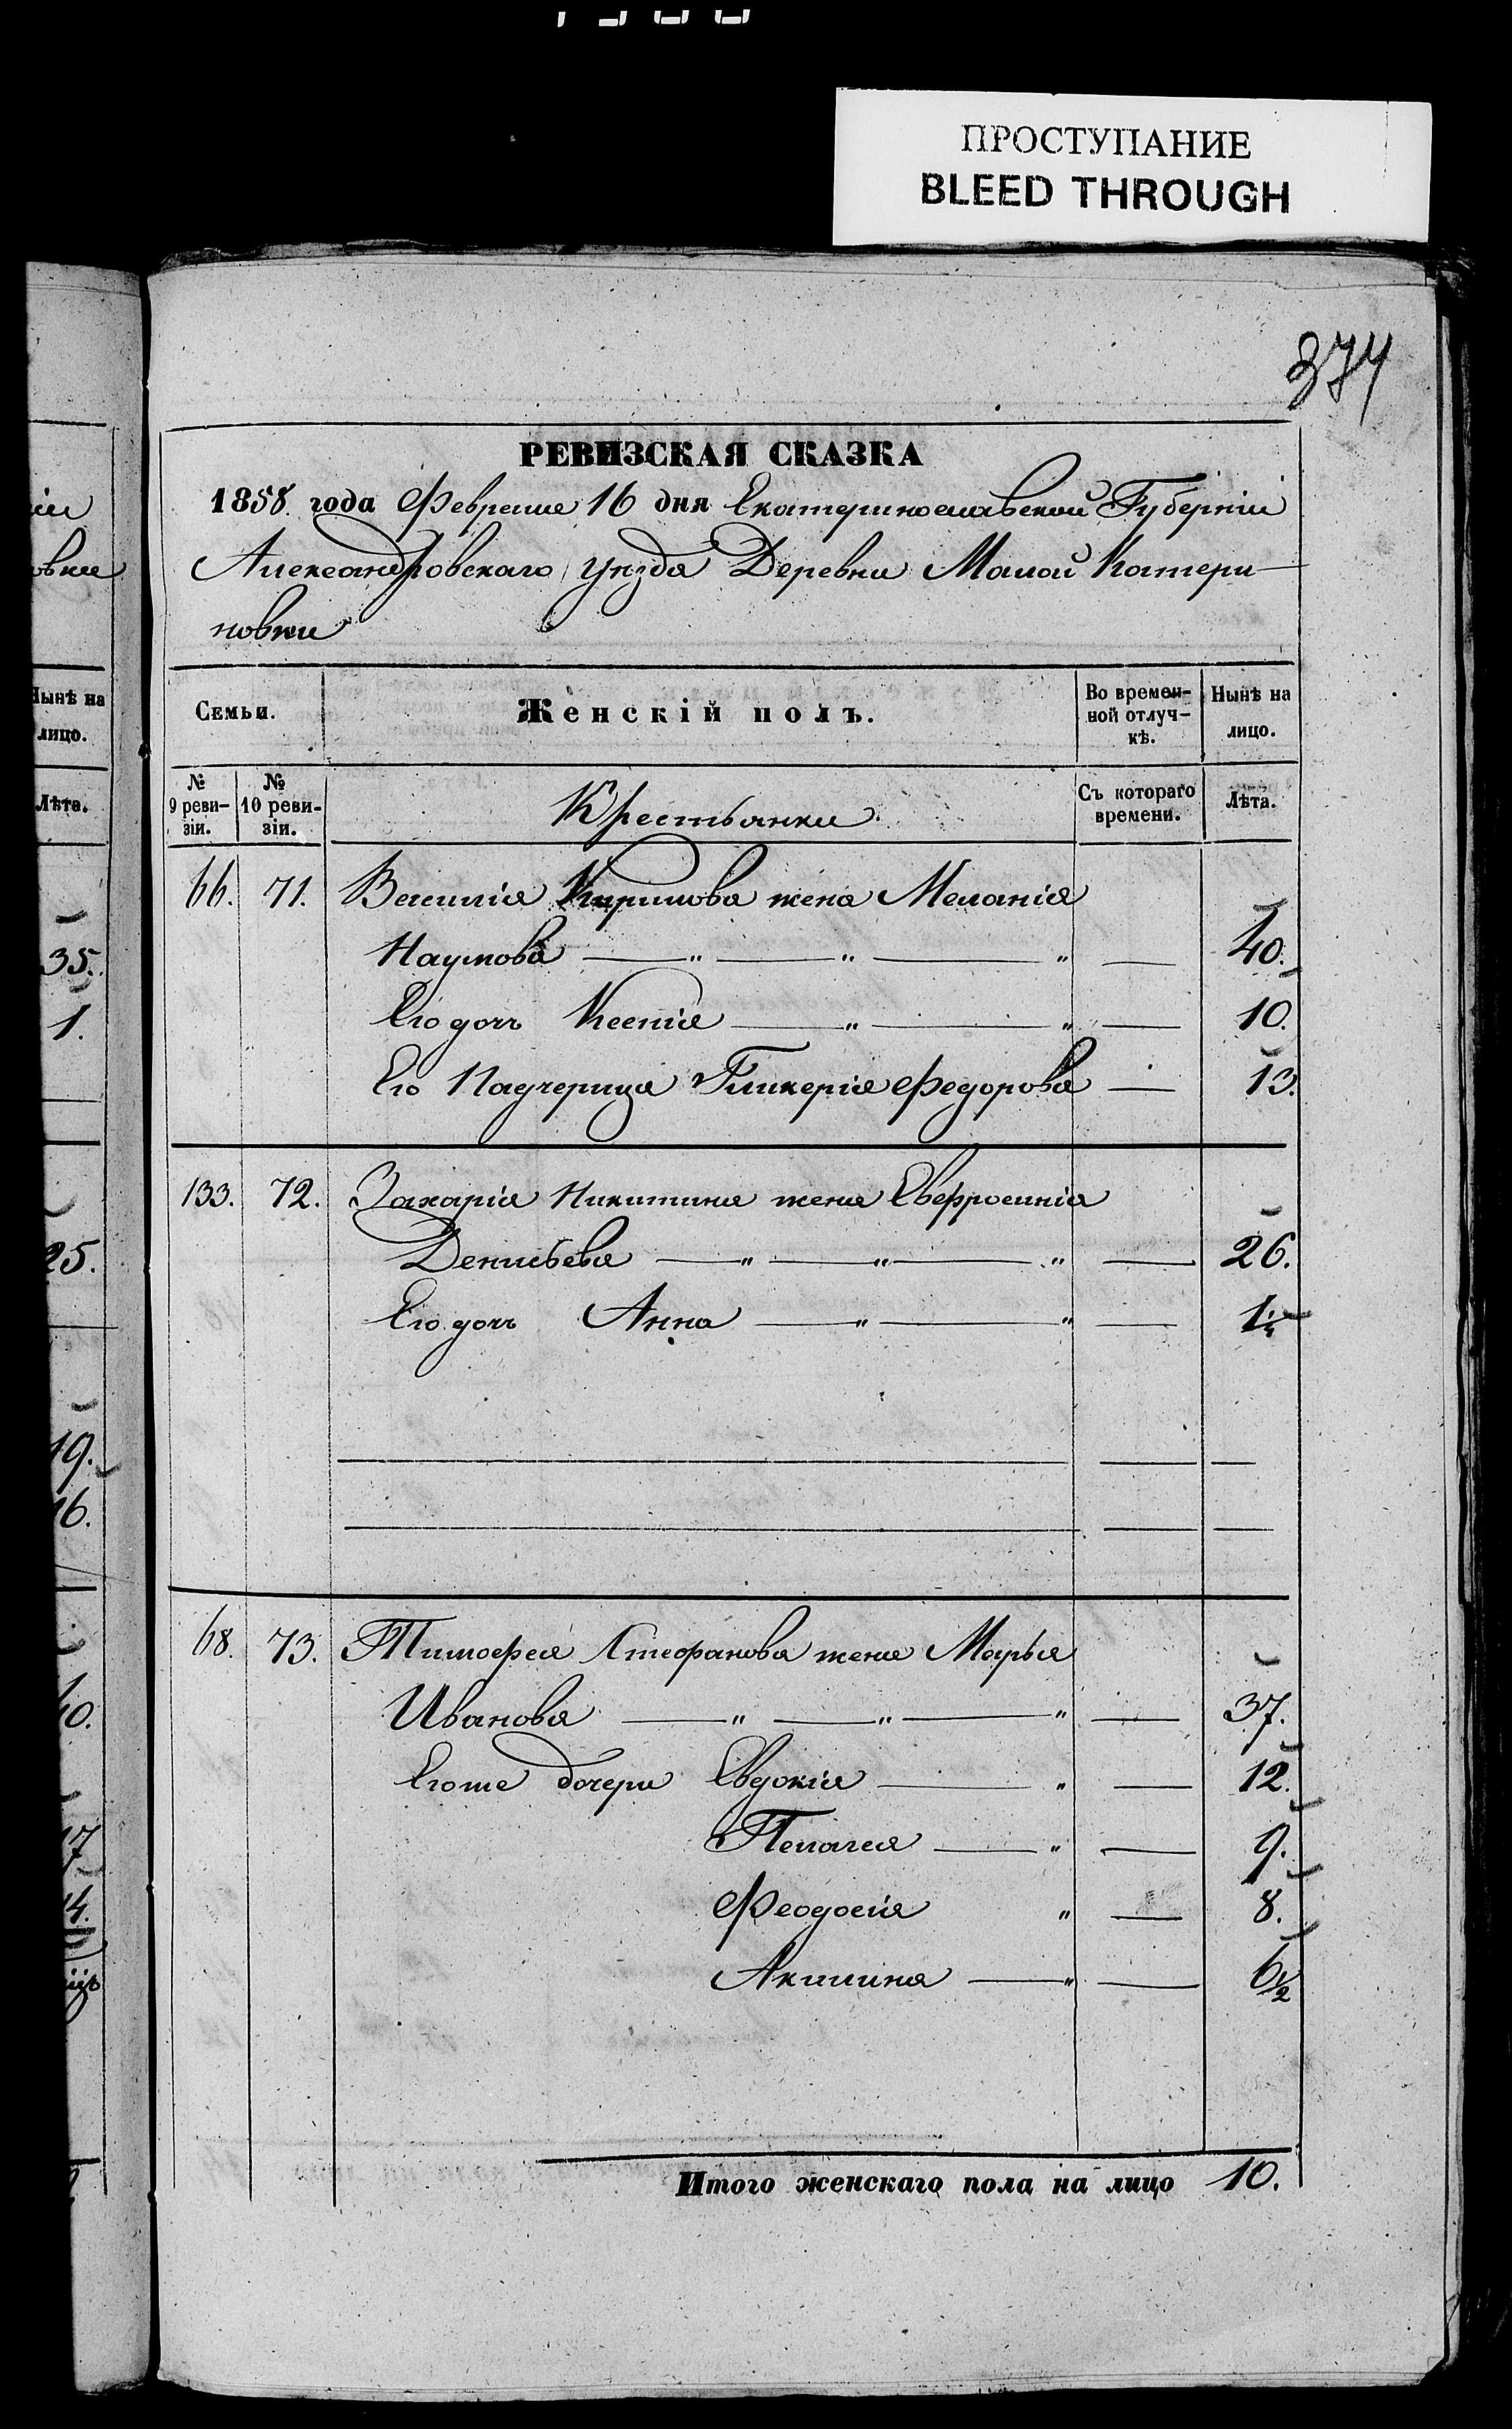 ПРОСТУПАНИЕ
BLEED THROUGH
374
РЕВИЗСКАЯ СКАЗКА
1858. года Февраля 16 дня Екатеринославской Губерніи
Александровскаго уѣзда Деревни Малой Катери-
новки
Семьи.
Женскій полъ.
Во времен-
ной отлуч-
кѣ.
Нынѣ на
лицо.
№
9 реви-
зіи.
№
10 реви-
зіи.
Крестьянки.
Съ котораго
времени.
Лѣта.
66. 71. Василія Кирилова жена Меланія
Наумова — " — " — " — 40.
Его дочь Ксенія — " — " — 10.
Его Падчерица Гликерія Федорова — 13.
133. 72. Захарія Никитина жена Евфросинія
Денисьева — " — " — " — 26.
Его дочь Анна — " — " —
68. 73. Тимофея Стефанова жена Марья
Иванова — " — " — " — 37.
Его же дочери Евдокія — " — 12.
Пелагея — " — 9.
Феодосія " — 8.
Акилина — " — 6 1/2
Итого женскаго пола на лицо 10.
Нынѣ на
лицо.
Лѣта.
35.
1.
25.
19.
16.